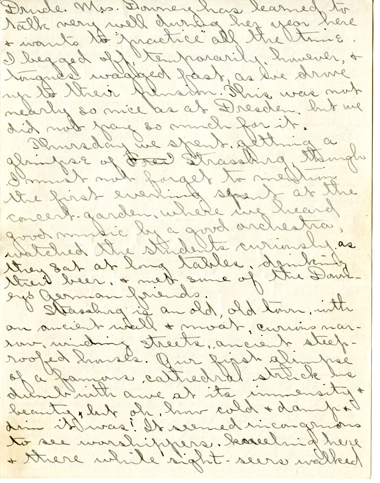 Drude. Mrs. Downey has learned to
talk very well during her year here
& wants to "practice" all the time.
I begged off, temporarily, however, &
tongues wagged fast, as we drove
up to their pension. This was not
nearly so nice as at Dresden, but we
did not pay so much for it.
Thursday we spent getting a
glimpse of Strassburg, though
I must not forget to mention
the first evening spent at the
concert-garden, where we heard
good music by a good orchestra,
watched the students curiously, as
they sat at long tables, drinking
their beer, & met some of the Down-
eys German friends.
Strassburg is an old, old town, with
an ancient wall & moat, curious nar-
row, winding streets, ancient steep-
roofed houses. Our first glimpse
of a famous cathedral struck us
dumb with awe at its immensity &
beauty, but oh, how cold & damp &
dim it was! It seemed incongruous
to see worshippers kneeling here
& there while sight-seers walked